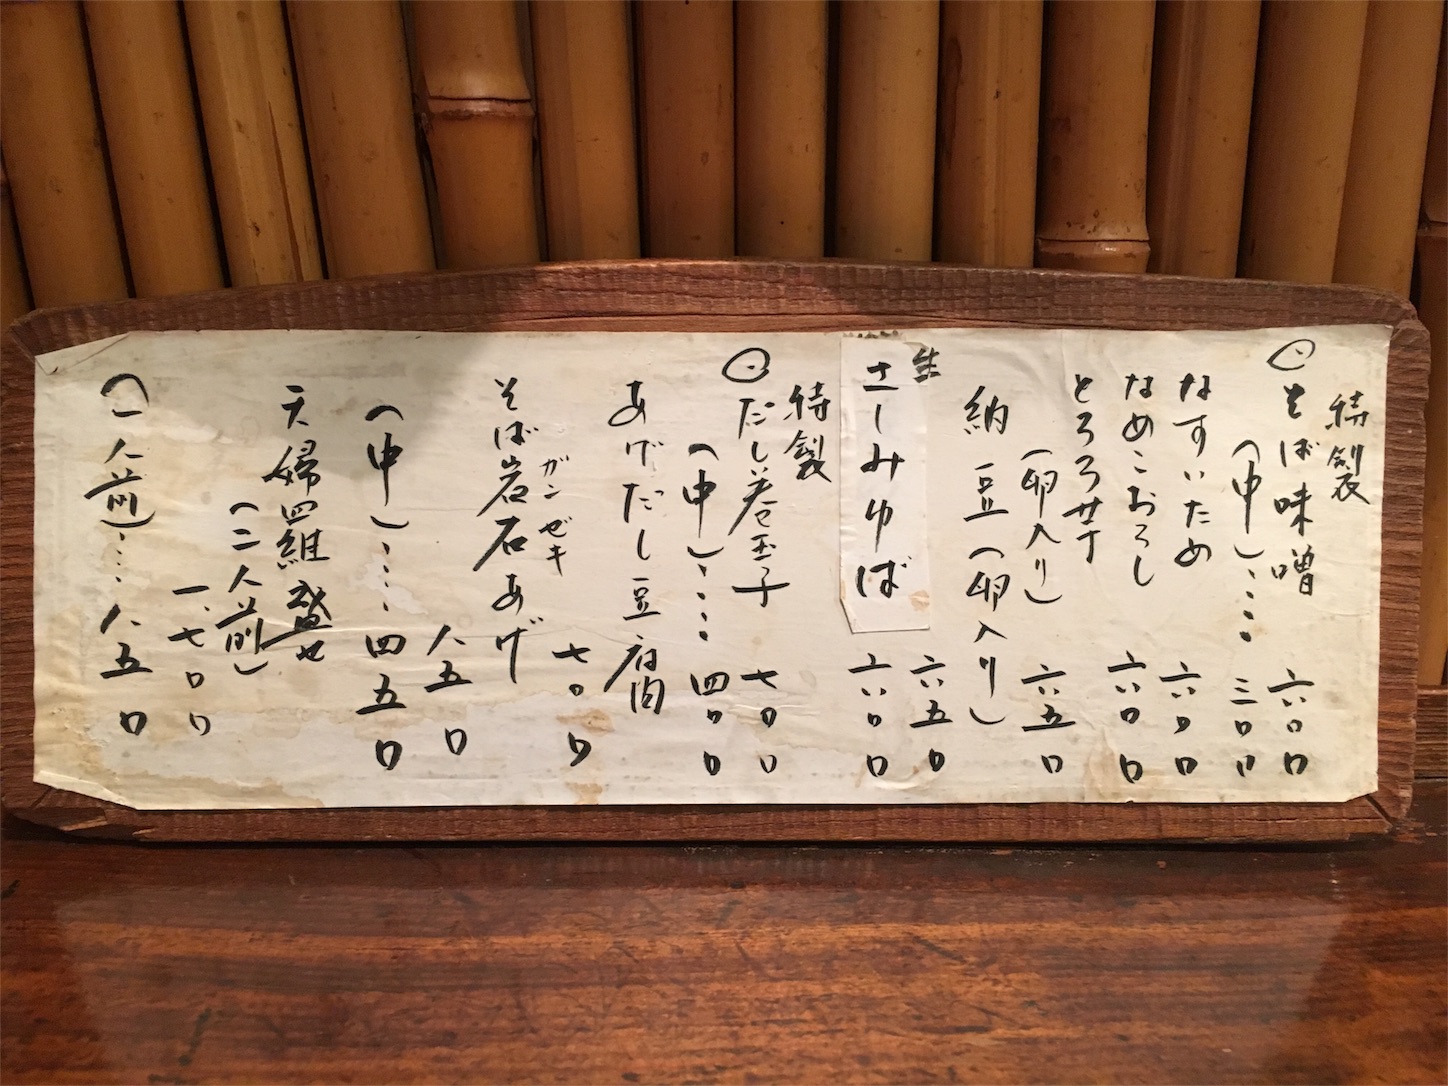 特製
そば味噌 六〇〇
(中)…… 三〇〇
なすいため 六〇〇
なめこおろし 六〇〇
とろろ芋
(卵入り) 六五〇
納豆(卵入り) 六五〇
生
さしみゆば 六〇〇
特製
だし巻玉子 七〇〇
(中)…… 四〇〇
あげだし豆腐
七〇〇
ガンゼキ
そば岩石あげ
八五〇
(中)…… 四五〇
天婦羅盛せ
(二人前)
一、七〇〇
(一人前)…… 八五〇